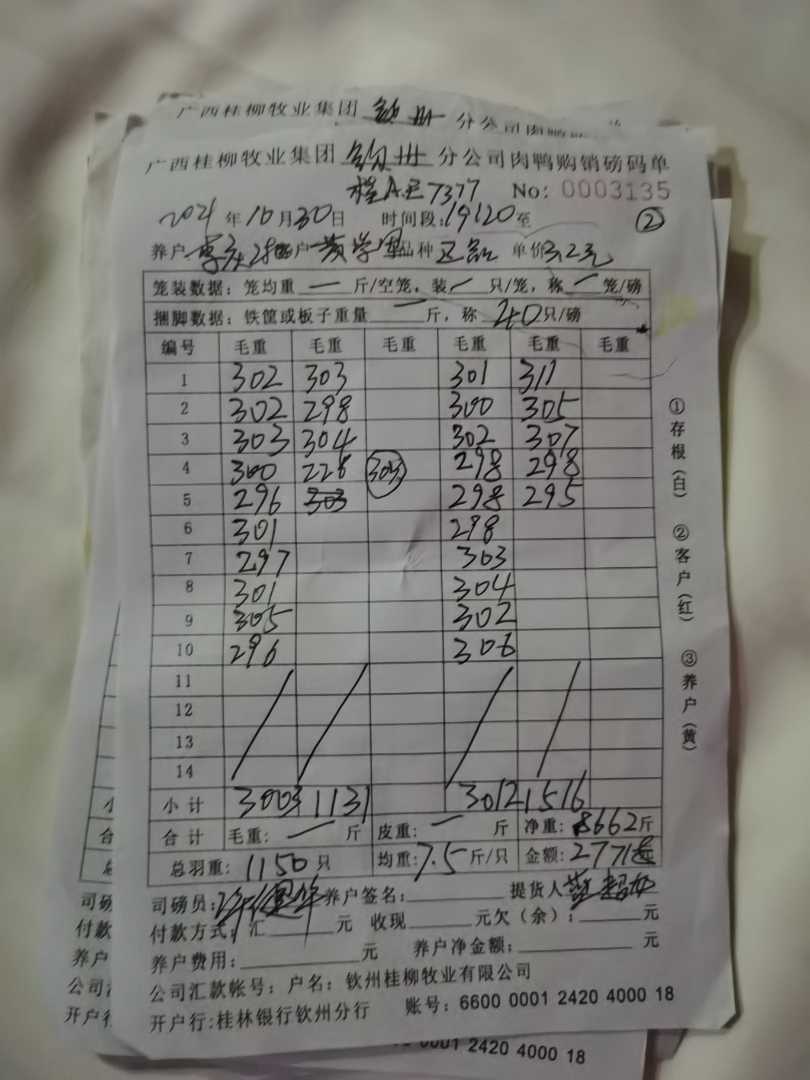 广西桂柳牧业集团 钦州 分公司肉鸭
广西桂柳牧业集团 钦州 分公司肉鸭购销磅码单
桂A 7377 No: 0003135
2021 年 10 月 30 日 时间段: 19:20 至 ②
养户 户 黄学 品种 正品 单价 3.2元
笼装数据: 笼均重 一 斤/空笼, 装 一 只/笼, 称 一 笼/磅
捆脚数据: 铁筐或板子重量 一 斤, 称 40 只/磅
编号 毛重 毛重 毛重 毛重 毛重 毛重
1 302 303 301 311
2 302 298 300 305
3 303 304 302 307
4 300 226 303 298 298
5 296 303 298 295
6 301 298
7 297 303
8 301 304
9 305 302
10 296 306
11
12
13
14
小计 3003 1131 3012 1516
合计 毛重: 一 斤 皮重: 一 斤 净重: 8662 斤
总羽重: 1150 只 均重: 7.5 斤/只 金额: 2771
司磅员: 养户签名: 提货人
付款方式: 汇 元 收现 元 欠(余): 元
养户费用: 元 养户净金额: 元
公司汇款帐号: 户名: 钦州桂柳牧业有限公司
开户行: 桂林银行钦州分行 账号: 6600 0001 2420 4000 18
①存根(白) ②客户(红) ③养户(黄)
小
合
司磅
付款
养户
公司
开户行
0001 2420 4000 18